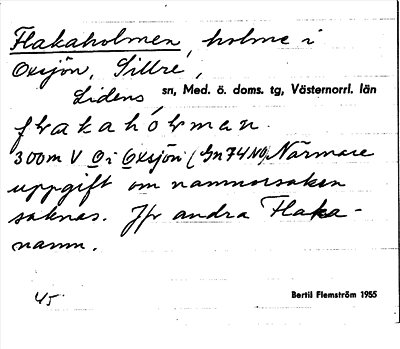 Flakaholmen, holme i
Oxsjön, Sillre,
Lidens sn, Med. ö. doms. tg, Västernorrl. län
flakahólman.
300m V O i Oxsjön (Gn74NO) Närmare
uppgift om namnorsaken
saknas. Jfr andra Flaka-
namn.
45. Bertil Flemström 1955